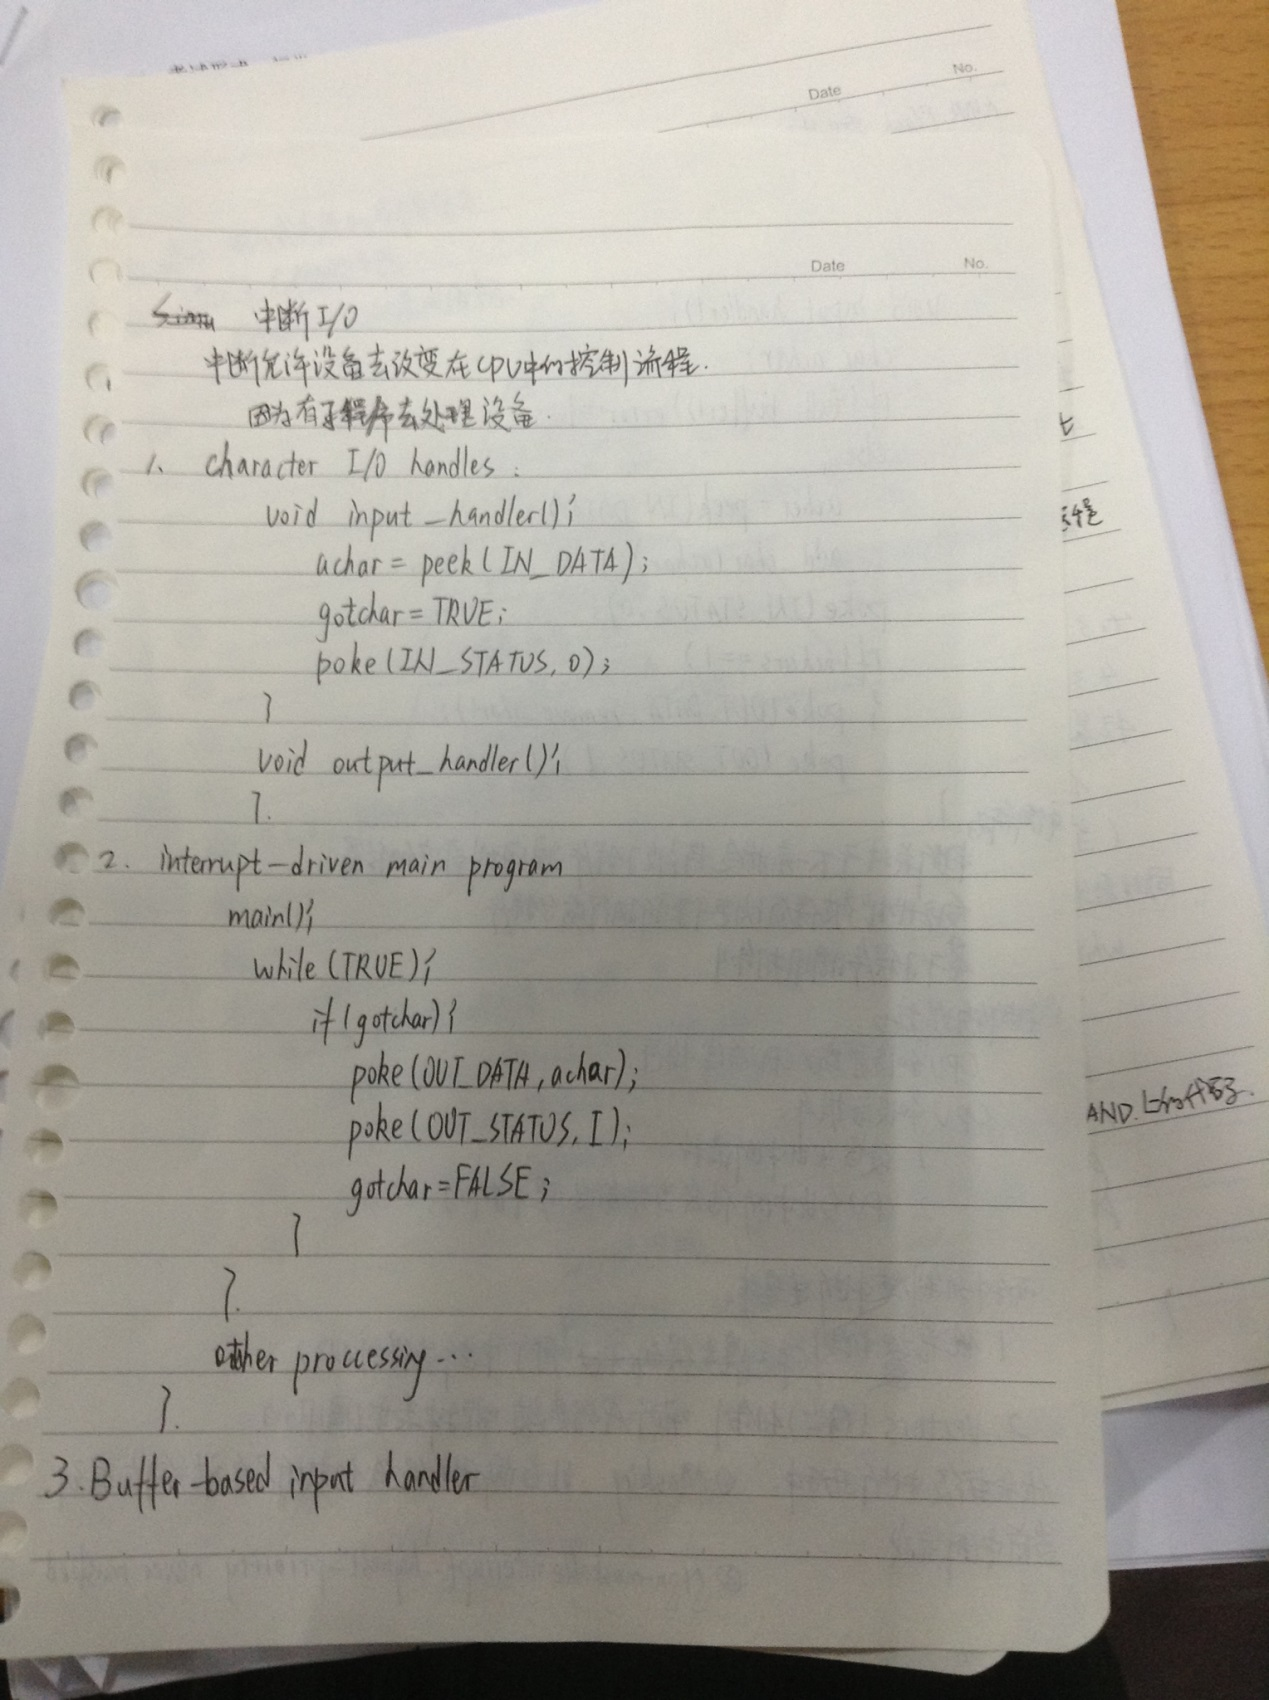 Date No.
Date No.
中断 I/O
中断允许设备去改变在CPU中的控制流程.
因为有子程序去处理设备.
1、 character I/O handles :
void input_handler(){
achar = peek(IN_DATA);
gotchar = TRUE;
poke(IN_STATUS, 0);
}
void output_handler(){
}.
2. interrupt-driven main program
main(){
while (TRUE){
if (gotchar){
poke(OUT_DATA, achar);
poke(OUT_STATUS, I);
gotchar = FALSE;
}
}.
other proccessing...
}.
3. Buffer-based input handler
AND